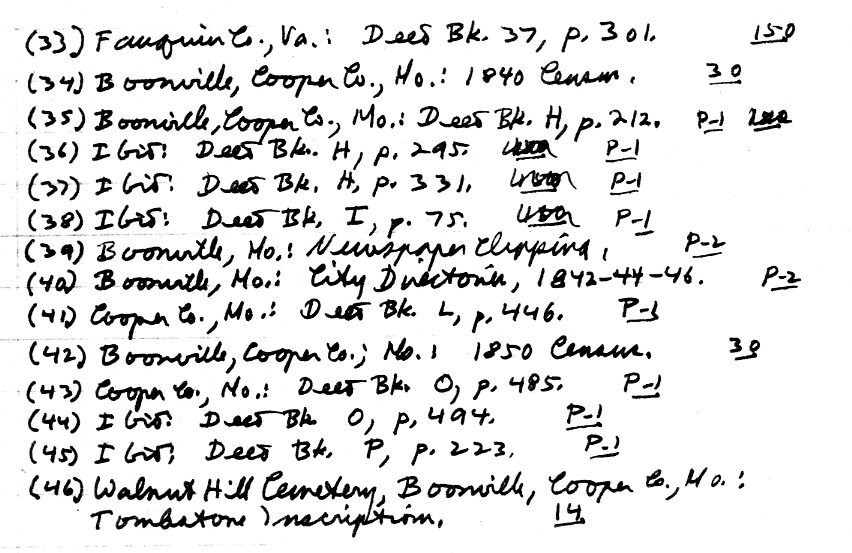 (33) Fauquier Co., Va.: Deed Bk. 37, p. 301. 150
(34) Boonville, Cooper Co., Mo.: 1840 Census. 30
(35) Boonville, Cooper Co., Mo.: Deed Bk. H, p. 212. P-1
(36) Ibid: Deed Bk. H, p. 295. P-1
(37) Ibid: Deed Bk. H, p. 331. P-1
(38) Ibid: Deed Bk. I, p. 75. P-1
(39) Boonville, Mo.: Newspaper Clipping. P-2
(40) Boonville, Mo.: City Directories, 1842-44-46. P-2
(41) Cooper Co., Mo.: Deed Bk. L, p. 446. P-1
(42) Boonville, Cooper Co.; Mo.: 1850 Census. 30
(43) Cooper Co., Mo.: Deed Bk. O, p. 485. P-1
(44) Ibid: Deed Bk O, p. 494. P-1
(45) Ibid: Deed Bk. P, p. 223. P-1
(46) Walnut Hill Cemetery, Boonville, Cooper Co., Mo.:
Tombstone Inscription. 14